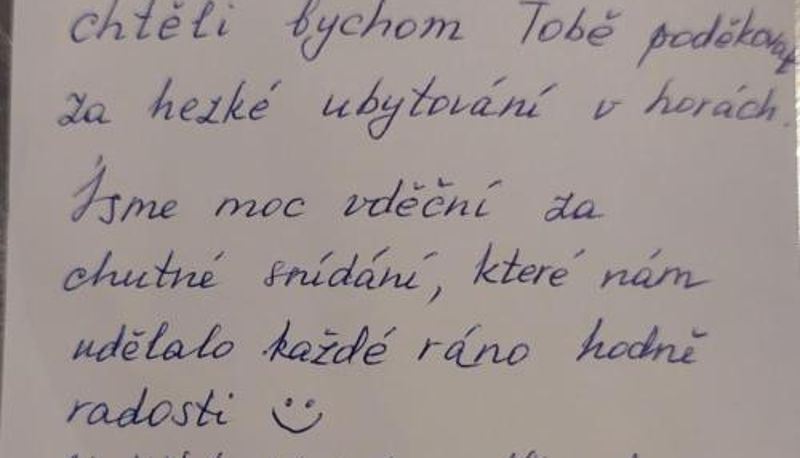 chtěli bychom Tobě poděkovat
za hezké ubytování v horách.
Jsme moc vděční za
chutné snídání, které nám
udělalo každé ráno hodně
radosti